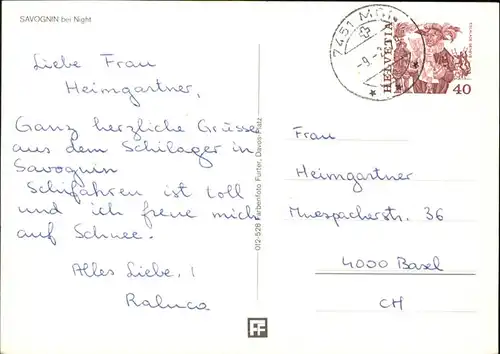 SAVOGNIN bei Night
Liebe Frau
Heimgartner,
Ganz herzliche Grüsse
aus dem Schilager in
Savognin
Schifahren ist toll
und ich freue mich
auf Schnee.
Alles Liebe, !
Raluca
012-528 Farbenfoto Furter, Davos-Platz
7451
HELVETIA
40
Frau
Heimgartner
Muespacherstr. 36
4000 Basel
CH
FF